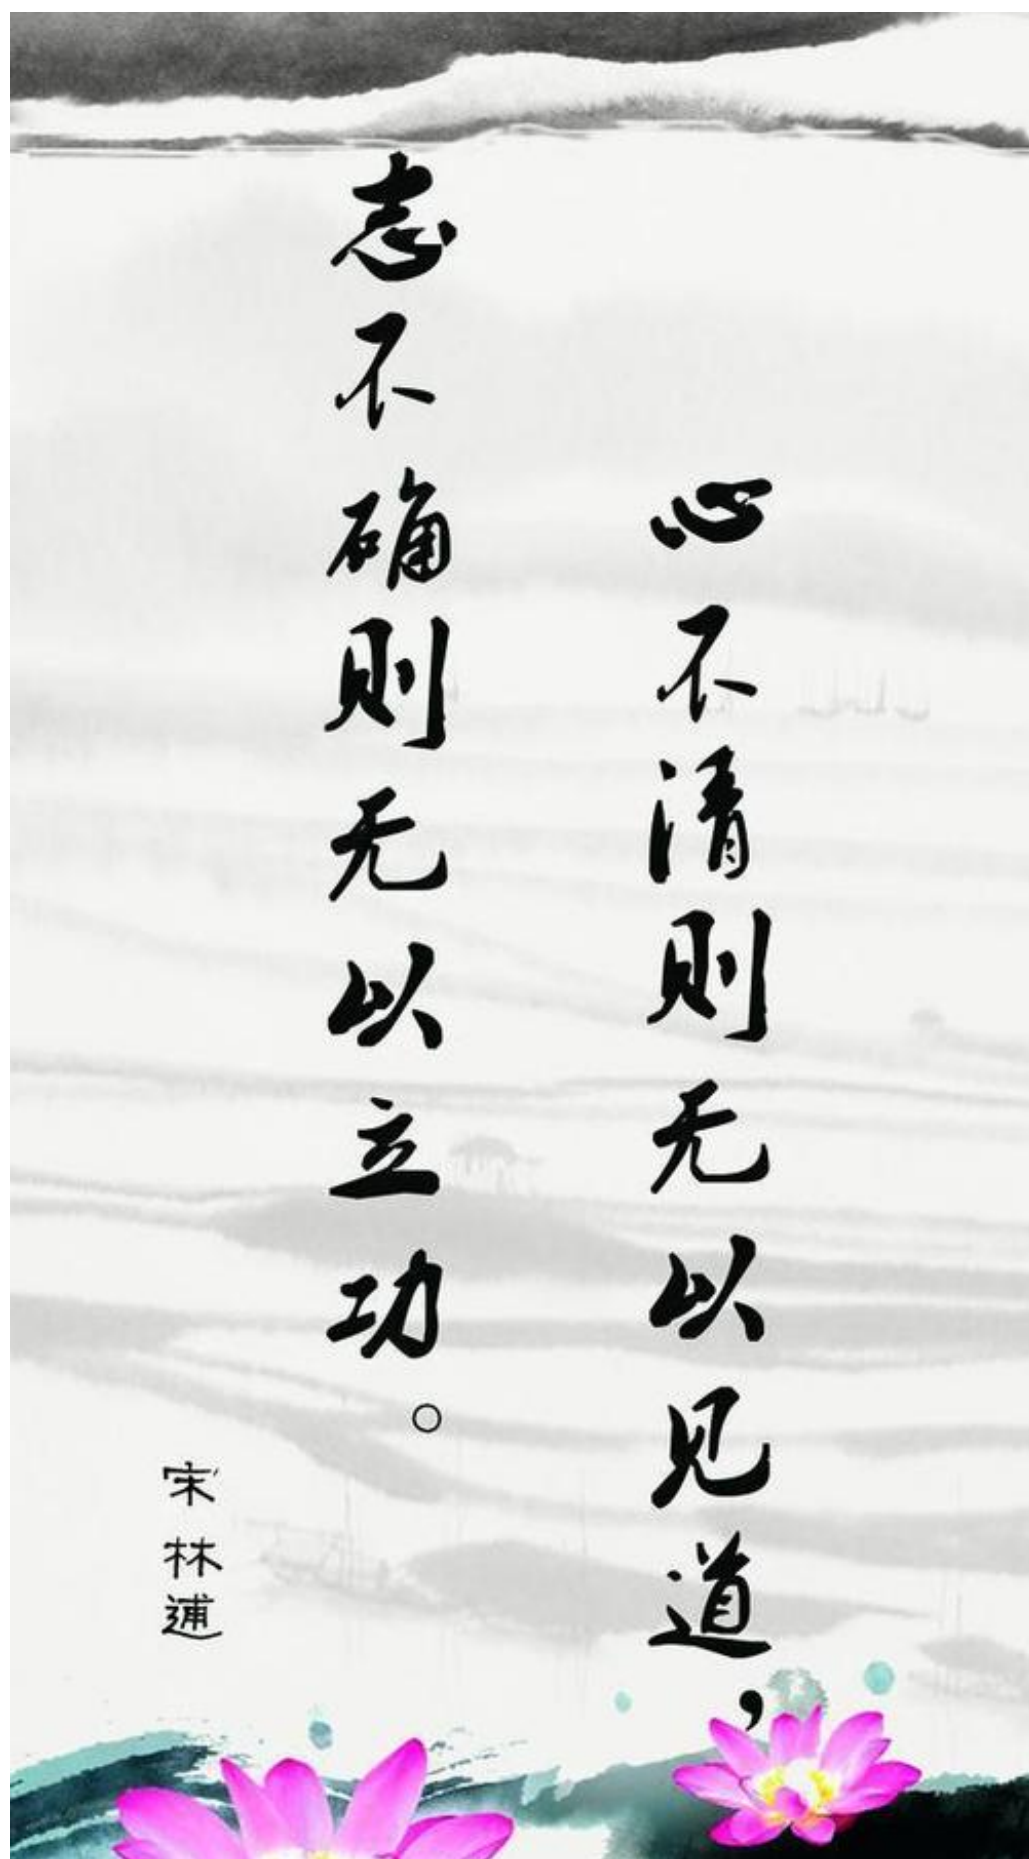 心不清则无以见道，
志不确则无以立功。
宋林逋